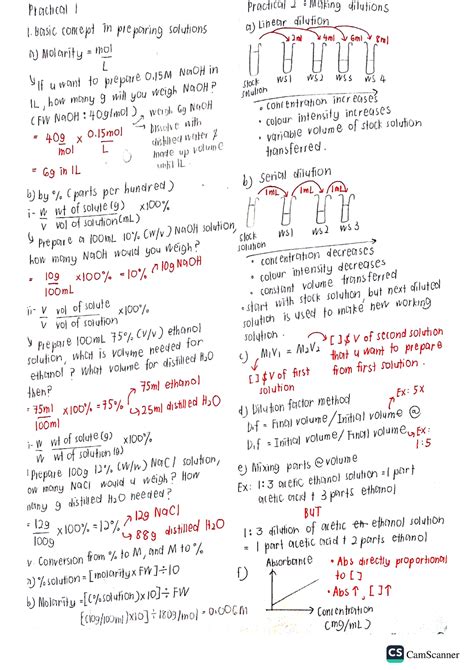 Practical 1
1. Basic concept in preparing solutions
a) Molarity = mol
L
↳ If u want to prepare 0.15M NaOH in
1L, how many g will you weigh NaOH?
(FW NaOH : 40g/mol)
= 40g x 0.15mol
mol L
= 6g in 1L
weigh 6g NaOH
Dissolve with
distilled water &
made up volume
until 1L
b) by % (parts per hundred)
i- w wt of solute (g) x100%
v vol of solution (mL)
↳ Prepare a 100mL 10% (w/v) NaOH solution,
how many NaOH would you weigh?
= 10g x100% = 10% ↗ 10g NaOH
100mL
ii- v vol of solute x100%
v vol of solution
↳ Prepare 100mL 75% (v/v) ethanol
solution, what is volume needed for
ethanol? What volume for distilled H2O
then?
= 75ml x100% = 75%
100ml
75ml ethanol
25ml distilled H2O
i- w wt of solute (g) x100%
w wt of solution (g)
Prepare 100g 12% (w/w) NaCl solution,
how many NaCl would u weigh? How
many g distilled H2O needed?
= 12g x100% = 12%
100g
12g NaCl
88g distilled H2O
v Conversion from % to M, and M to %
a) % solution = [molarity x FW] ÷ 10
b) Molarity = [(% solution) x 10] ÷ FW
Practical 2 : Making dilutions
a) Linear dilution
2ml 4ml 6ml 8ml
stock
solution
WS1 WS2 WS3 WS4
• concentration increases
• colour intensity increases
• variable volume of stock solution
transferred.
b) Serial dilution
1mL 1mL 1mL
stock
solution
WS1 WS2 WS3
• concentration decreases
• colour intensity decreases
• constant volume transferred
• start with stock solution, but next diluted
solution is used to make new working
solution.
c) M1V1 = M2V2
[ ] & V of second solution
that u want to prepare
from first solution.
[ ] & V of first
solution
d) Dilution factor method
Ex: 5x
Dif = Final volume / Initial volume @
Dif = Initial volume / Final volume
Ex:
1:5
e) Mixing parts @ volume
Ex: 1:3 acetic ethanol solution = 1 part
acetic acid + 3 parts ethanol
BUT
1:3 dilution of acetic ethanol solution
= 1 part acetic acid + 2 parts ethanol
f) Absorbance
• Abs directly proportional
to [ ]
• Abs ↑, [ ] ↑
Concentration
(mg/mL)
CS CamScanner